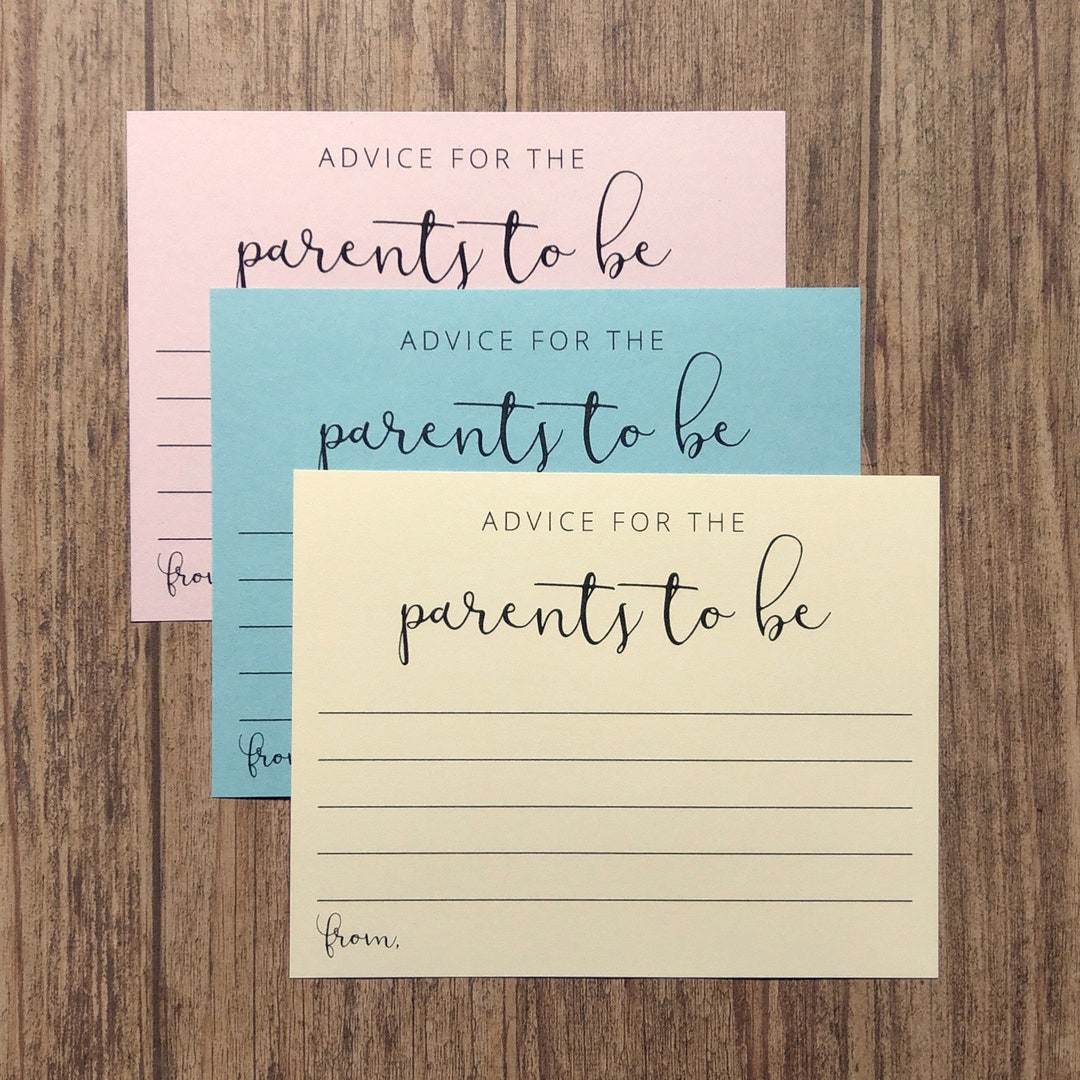 ADVICE FOR THE
parents to be
ADVICE FOR THE
parents to be
ADVICE FOR THE
parents to be
from,